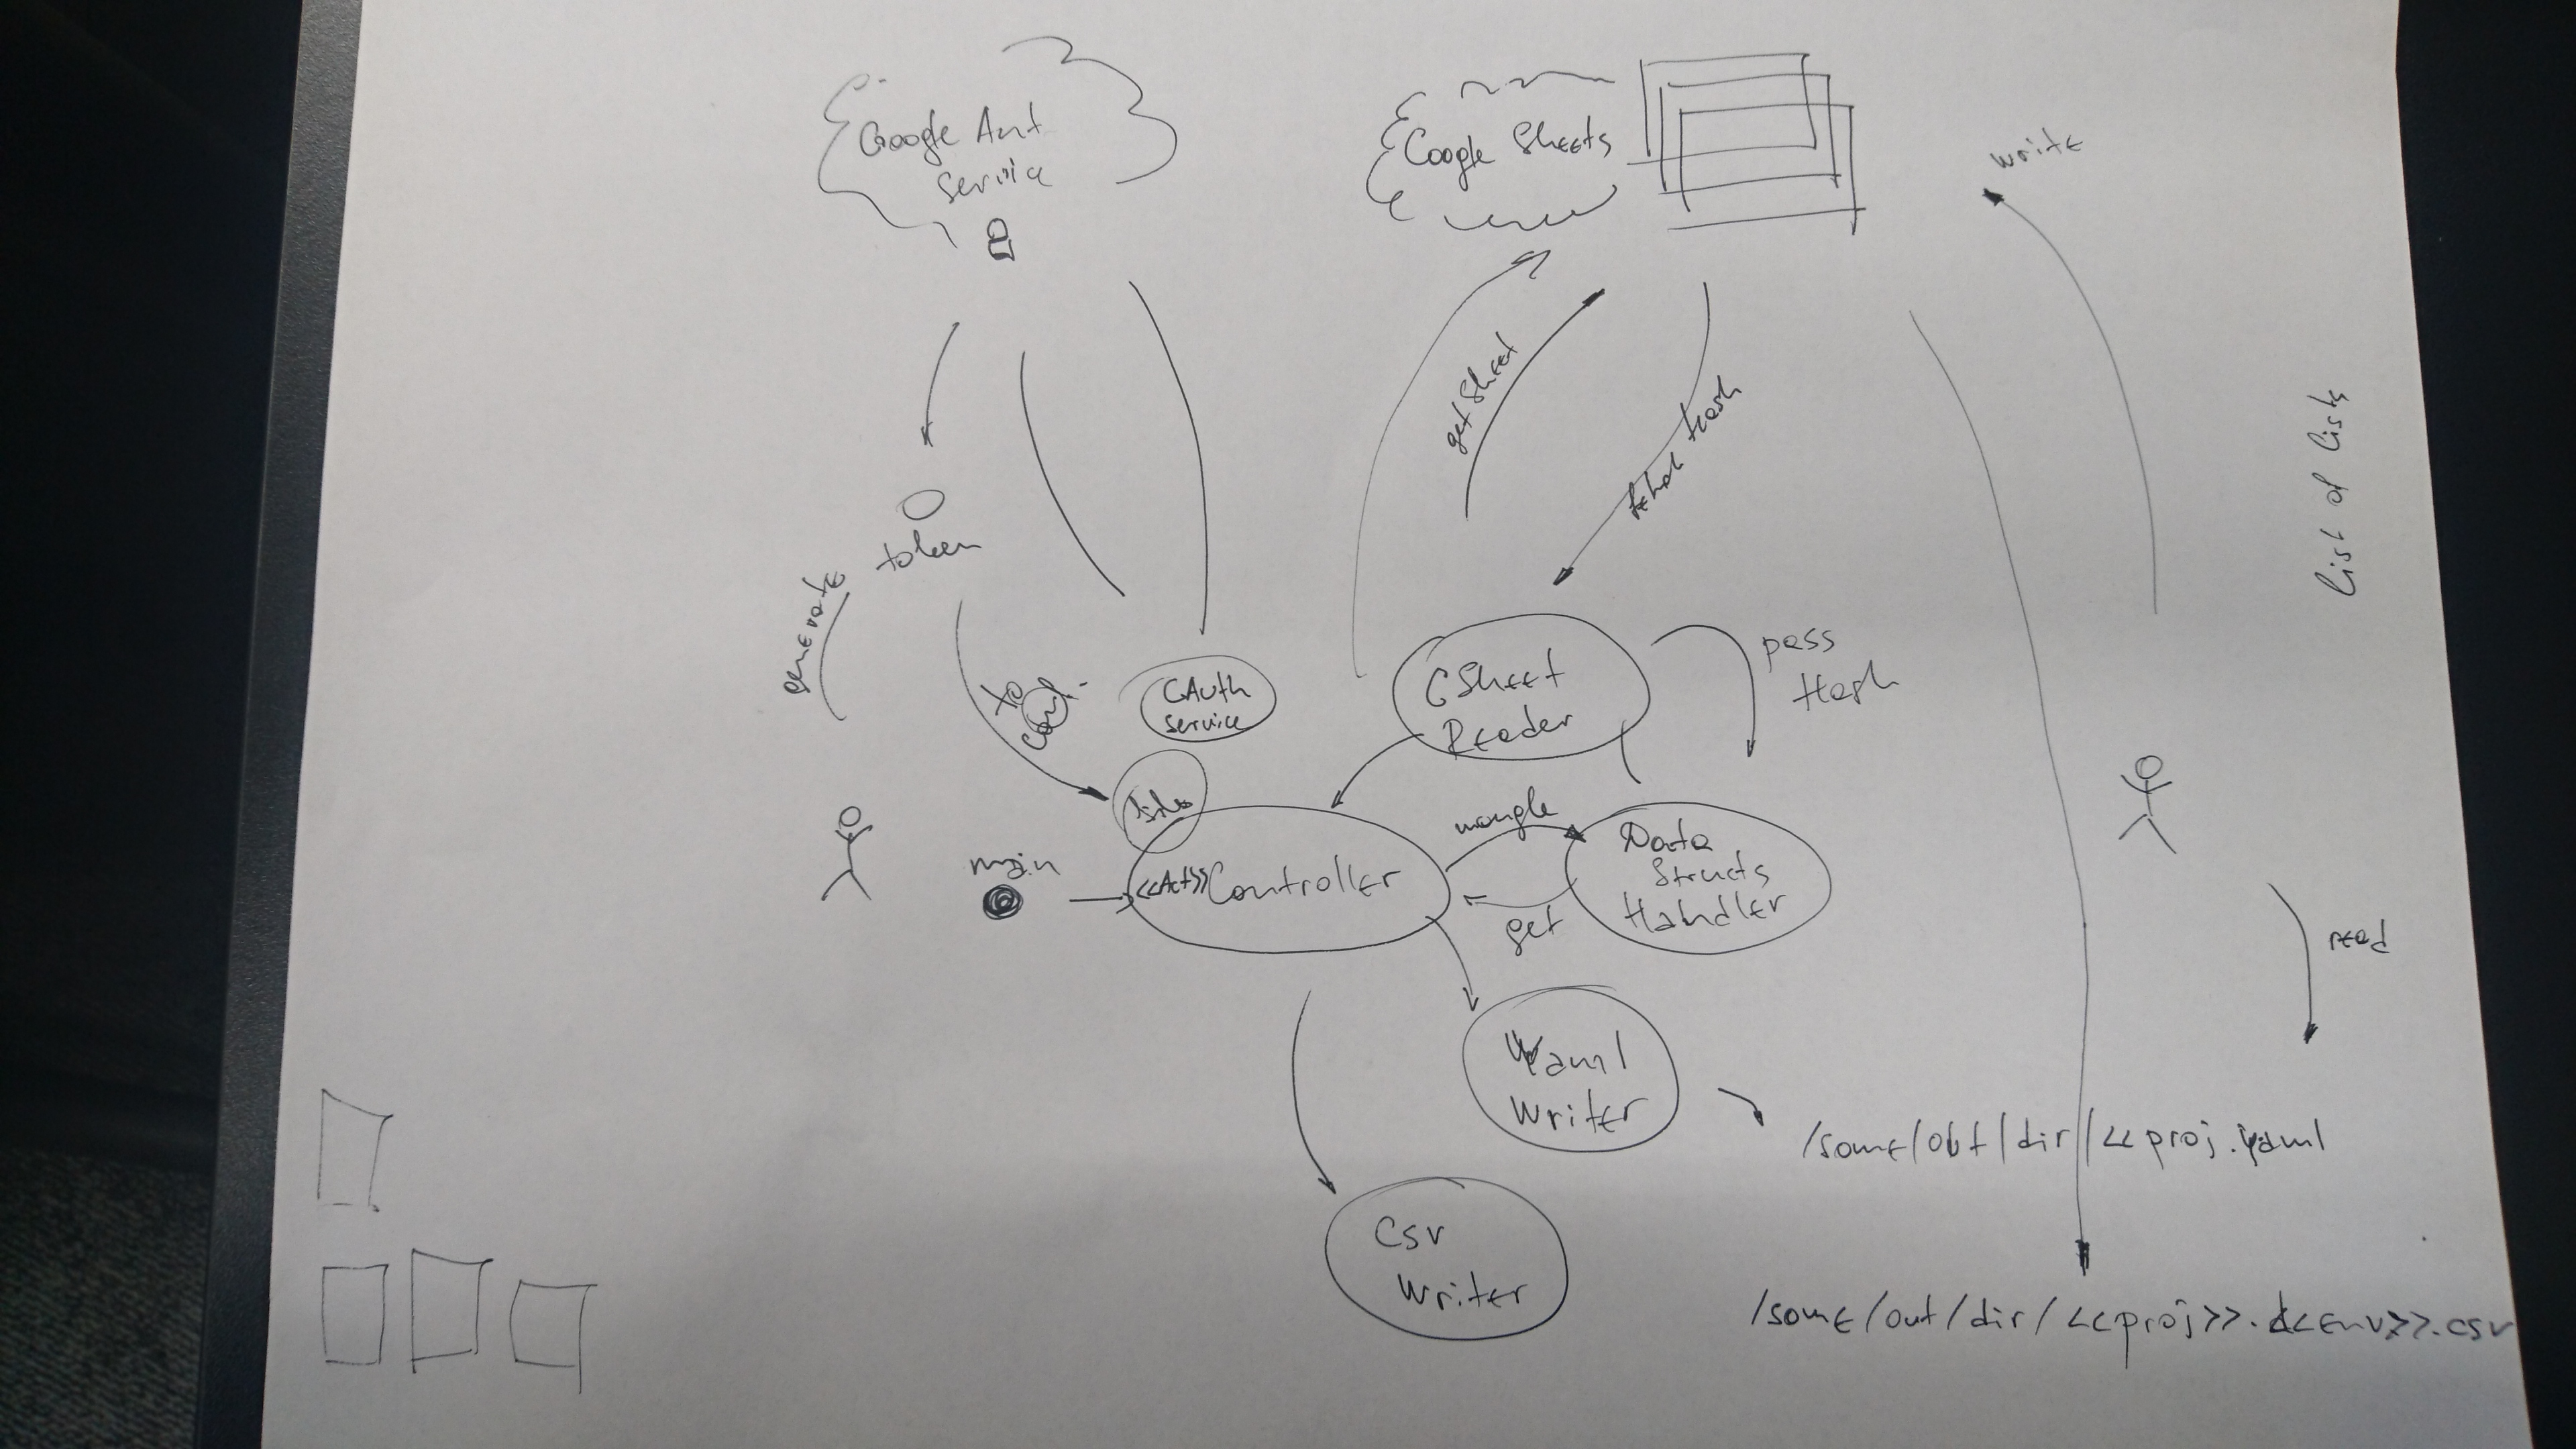 Google Aut
Service
Google Sheets
write
get Sheet
Hash
List of Lists
token
generate
to
conf.
GAuth
service
GSheet
Reader
pass
Hash
main
<<Act>> Controller
mangle
get
Data
Structs
Handler
read
Yaml
Writer
/some/out/dir/<<proj.yaml
Csv
Writer
/some/out/dir/<<proj>>.<<env>>.csv